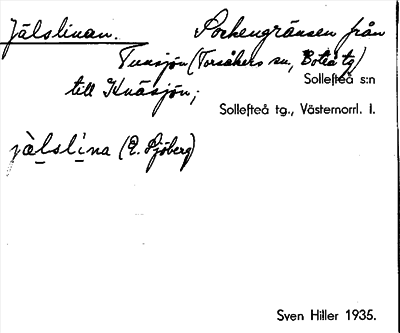 Jälslinan. Sockengränsen från
Tunsjön (Torsåkers sn, Boteå tg)
Sollefteå s:n
till Knäsjön;
Sollefteå tg., Västernorrl. l.
jälslina (E. Sjöberg)
Sven Hiller 1935.